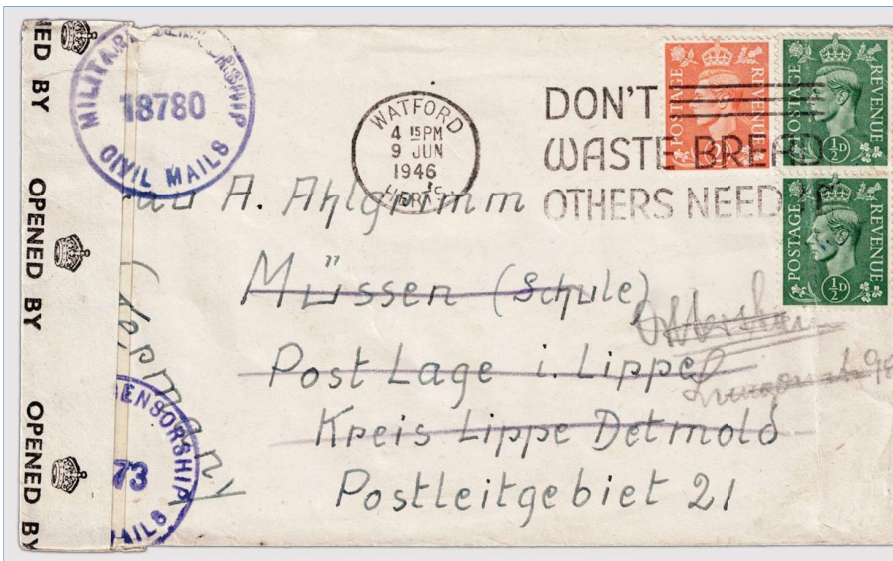 OPENED BY
OPENED BY
OPENED BY
MILITARY CENSORSHIP
18780
CIVIL MAILS
WATFORD
4 15PM
9 JUN
1946
HERTS
DON'T
WASTE BREAD
OTHERS NEED IT
POSTAGE REVENUE
POSTAGE REVENUE
½D
POSTAGE REVENUE
½D
A. Ahlgrimm
Müssen (Schule)
Post Lage i. Lippe
Kreis Lippe Detmold
Postleitgebiet 21
Germany
CENSORSHIP
73
MAILS